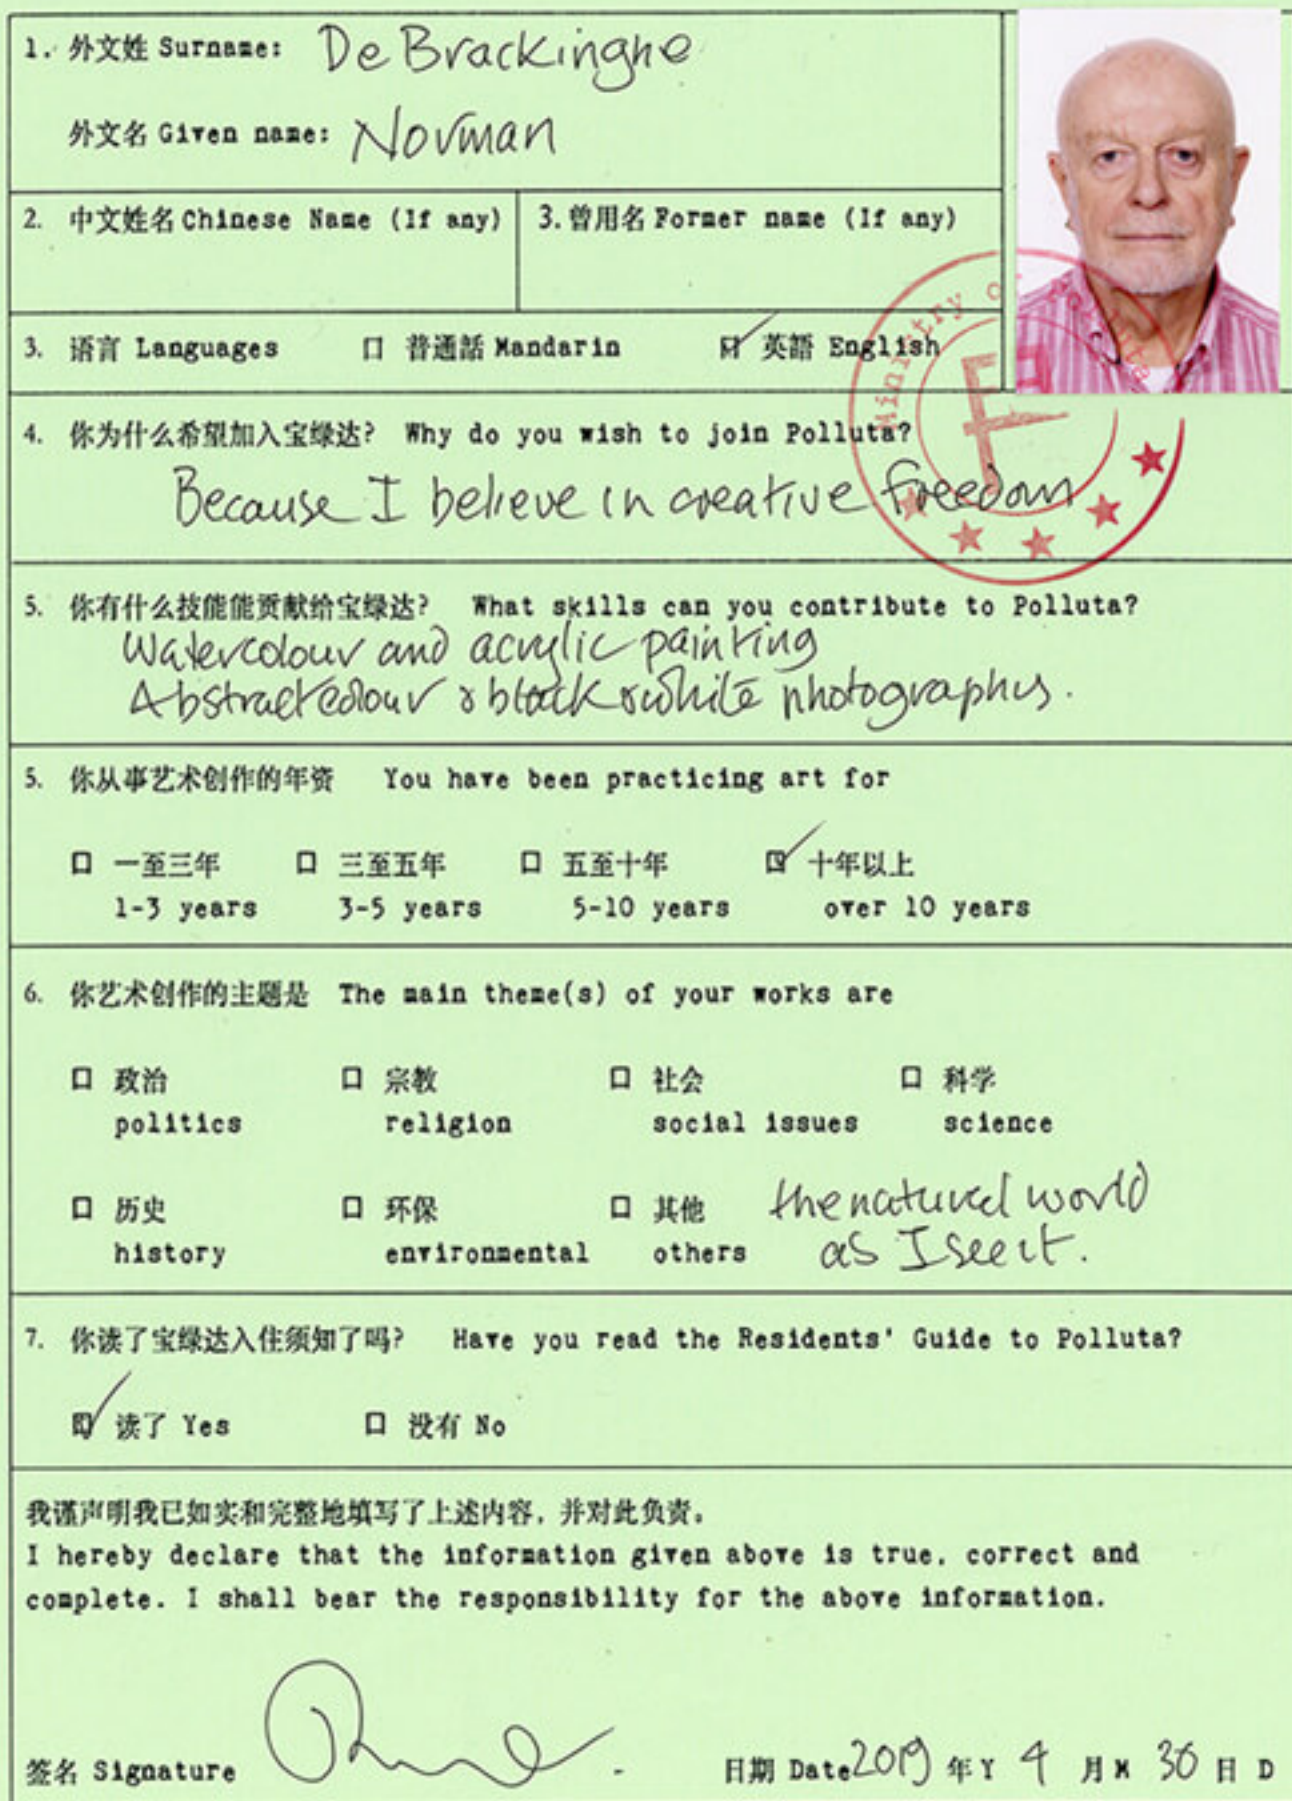 1. 外文姓 Surname: De Brackinghe
外文名 Given name: Norman
2. 中文姓名 Chinese Name (If any)
3. 曾用名 Former name (If any)
3. 语言 Languages 口 普通話 Mandarin 口 英語 English
Ministry of
4. 你为什么希望加入宝绿达? Why do you wish to join Polluta?
Because I believe in creative freedom
5. 你有什么技能能贡献给宝绿达? What skills can you contribute to Polluta?
Watercolour and acrylic painting
Abstract colour & black & white photographs.
5. 你从事艺术创作的年资 You have been practicing art for
口 一至三年 口 三至五年 口 五至十年 口 十年以上
1-3 years 3-5 years 5-10 years over 10 years
6. 你艺术创作的主题是 The main theme(s) of your works are
口 政治 口 宗教 口 社会 口 科学
politics religion social issues science
口 历史 口 环保 口 其他 the natural world
history environmental others as I see it.
7. 你读了宝绿达入住须知了吗? Have you read the Residents' Guide to Polluta?
口 读了 Yes 口 没有 No
我谨声明我已如实和完整地填写了上述内容，并对此负责。
I hereby declare that the information given above is true, correct and
complete. I shall bear the responsibility for the above information.
签名 Signature 日期 Date 2019 年 Y 4 月 M 30 日 D